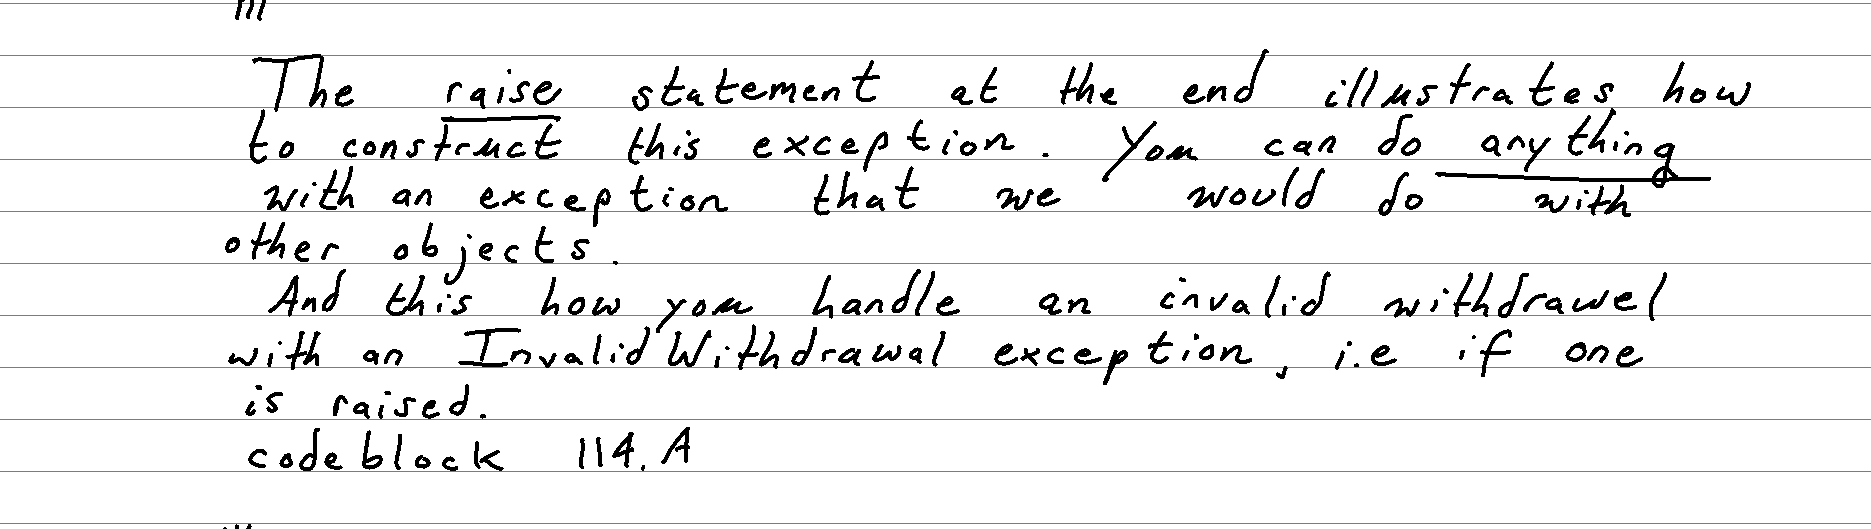 The raise statement at the end illustrates how
to construct this exception. You can do anything
with an exception that we would do with
other objects.
And this how you handle an invalid withdrawel
with an InvalidWithdrawal exception, i.e if one
is raised.
codeblock 114.A